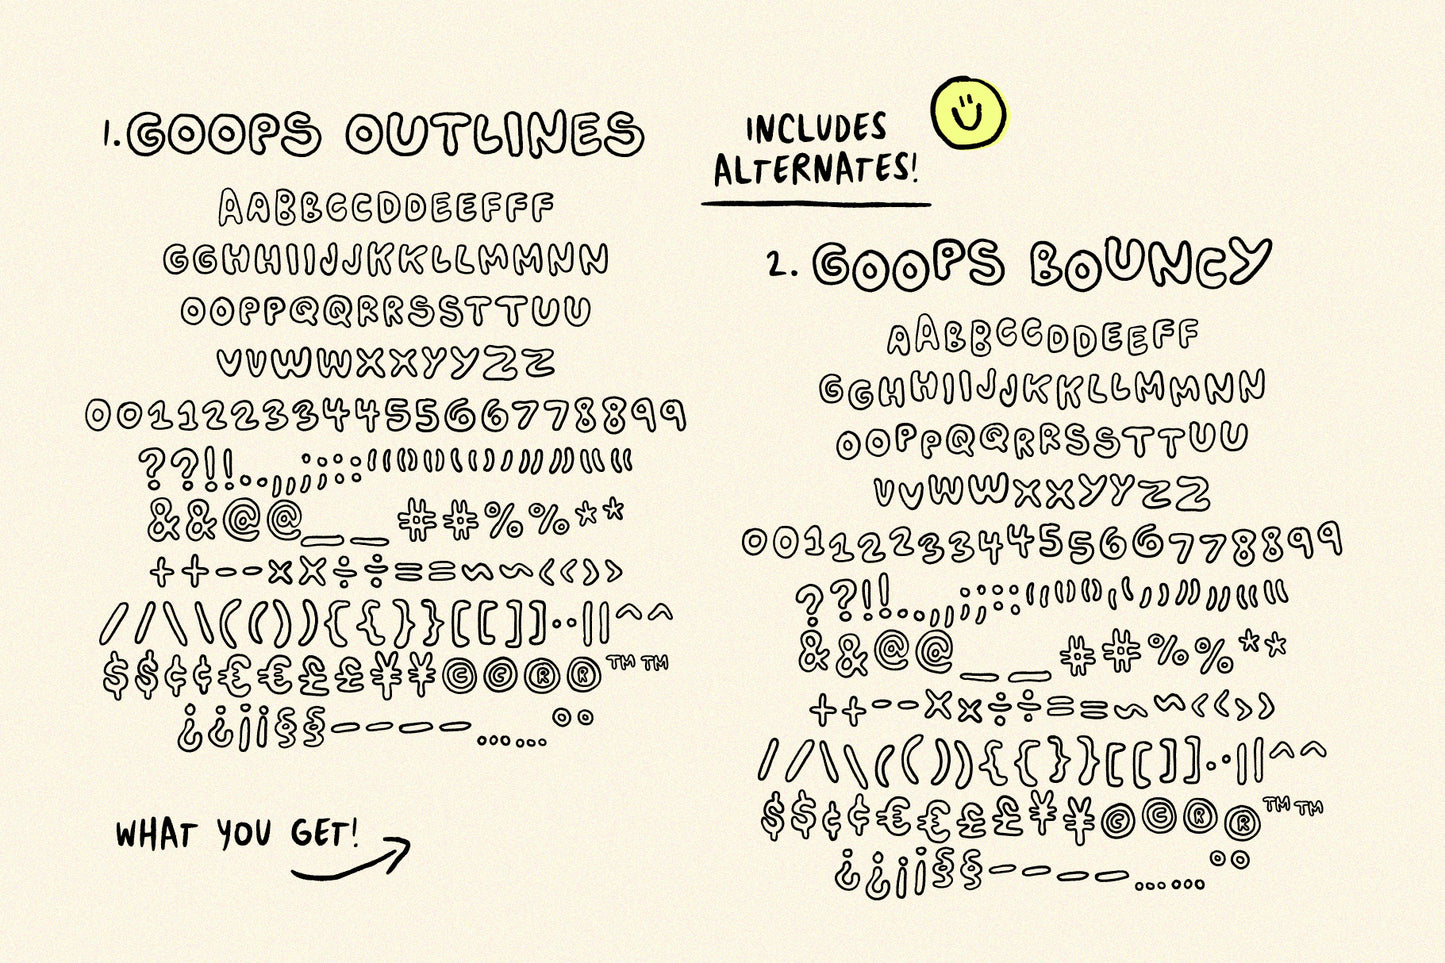 1. GOOPS OUTLINES
AABBCCDDEEFFF
GGHHIIJJKKLLMMNN
OOPPQQRRSSTTUU
VVWWXXYYZZ
00112233445566778899
??!!..,,;;::''""‘‘’’““””
&&@@__##%%**
++--××÷÷==~~‹‹››
//\\(()){{}}[[]]··||^^
$$¢¢€€££¥¥©©®®™™
¿¿¡¡§§––——……°°
WHAT YOU GET!
INCLUDES
ALTERNATES!
2. GOOPS BOUNCY
AABBCCDDEEFF
GGHHIIJJKKLLMMNN
OOPPQQRRSSTTUU
VVWWXXYYZZ
00112233445566778899
??!!..,,;;::''""‘‘’’””““
&&@@__##%%**
++--××÷÷==~~‹‹››
//\\(()){{}}[[]]··||^^
$$¢¢€€££¥¥©©®®™™
¿¿¡¡§§––——……°°